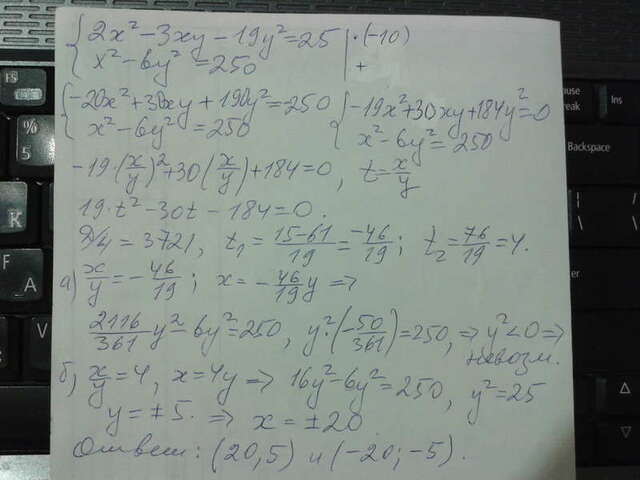 { 2x² - 3xy - 19y² = 25 | ·(-10)
x² - 6y² = 250 | +
{ -20x² + 30xy + 190y² = -250 { -19x² + 30xy + 184y² = 0
x² - 6y² = 250 x² - 6y² = 250
-19·(x/y)² + 30(x/y) + 184 = 0, t = x/y
19·t² - 30t - 184 = 0.
Д/4 = 3721, t₁ = (15-61)/19 = -46/19; t₂ = 76/19 = 4.
а) x/y = -46/19; x = -46/19 y ⇒
2116/361 y² - 6y² = 250, y²·(-50/361) = 250, ⇒ y² < 0 ⇒
невозм.
б) x/y = 4, x = 4y ⇒ 16y² - 6y² = 250, y² = 25
y = ±5 ⇒ x = ±20
Ответ: (20,5) и (-20; -5).
FS
%
5
К
F
А
use
reak
Ins
Backspace